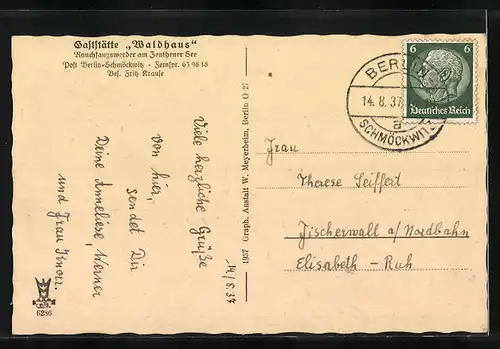 Gaststätte „Waldhaus“
Rauchfangswerder am Zeuthener See
Post Berlin-Schmöckwitz - Fernspr. 63 98 18
Bes. Fritz Krause
14/8.37
Viele herzliche Grüße
von hier,
sendet Dir
Deine Anneliese, Werner
und Frau Knorr.
6286
1937 Graph. Anstalt W. Meyerheim, Berlin O 27
6 6
Deutsches Reich
BERLIN
14.8.37
a
SCHMÖCKWITZ
Frau
Therese Seiffert
Fischerwall a/Nordbahn
Elisabeth - Ruh